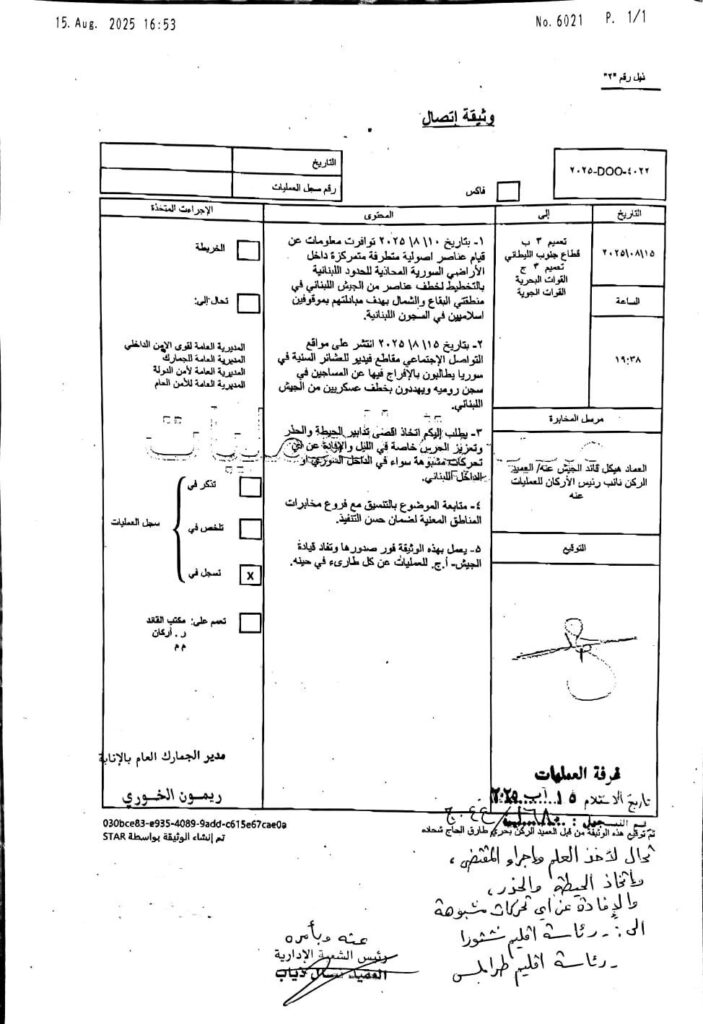 15. Aug. 2025 16:53
No. 6021 P. 1/1
ذيل رقم "٢"
وثيقة إتصال
٢٠٢٥-DOO-٤٠٢٢
فاكس
التاريخ
رقم سجل العمليات
التاريخ
إلى
المحتوى
الإجراءات المتخذة
٢٠٢٥\٠٨\١٥
الساعة
١٩:٣٨
تعميم ٣ ب
قطاع جنوب الليطاني
تعميم ٣ ج
القوات البحرية
القوات الجوية
مرسل المخابرة
العماد هيكل قائد الجيش عنه/ العميد
الركن نائب رئيس الأركان للعمليات
عنه
التوقيع
١- بتاريخ ١٠ \٨\ ٢٠٢٥ توافرت معلومات عن
قيام عناصر اصولية متطرفة متمركزة داخل
الأراضي السورية المحاذية للحدود اللبنانية
بالتخطيط لخطف عناصر من الجيش اللبناني في
منطقتي البقاع والشمال بهدف مبادلتهم بموقوفين
اسلاميين في السجون اللبنانية.
٢- بتاريخ ١٥ \٨\ ٢٠٢٥ انتشر على مواقع
التواصل الإجتماعي مقاطع فيديو للعشائر السنية في
سوريا يطالبون بالإفراج فيها عن المساجين في
سجن روميه ويهددون بخطف عسكريين من الجيش
اللبناني.
٣- يطلب إليكم اتخاذ اقصى تدابير الحيطة والحذر
وتعزيز الحرس خاصة في الليل والإفادة عن اي
تحركات مشبوهة سواء في الداخل السوري او
الداخل اللبناني.
٤- متابعة الموضوع بالتنسيق مع فروع مخابرات
المناطق المعنية لضمان حسن التنفيذ.
٥- يعمل بهذه الوثيقة فور صدورها وتفاد قيادة
الجيش- أ.ج. للعمليات عن كل طارىء في حينه.
الخريطة
تحال إلى:
المديرية العامة لقوى الامن الداخلي
المديرية العامة للجمارك
المديرية العامة لأمن الدولة
المديرية العامة للأمن العام
تذكر في
تلخص في
سجل العمليات
تسجل في
X
تعمم على: مكتب القائد
ر . أركان
م م
مدير الجمارك العام بالإنابة
ريمون الخوري
غرفة العمليات
تاريخ الاستلام ١٥ آب ٢٠٢٥
030bce83-e935-4089-9add-c615e67cae0a
تم إنشاء الوثيقة بواسطة STAR
تم توقيع هذه الوثيقة من قبل العميد الركن بحري طارق الحاج شحاده
تحال لأخذ العلم واجراء المقتضى ،
واتخاذ الحيطة والحذر ،
والإفادة عن اي تحركات مشبوهة
الى :- رئاسة اقليم شتورا
- رئاسة اقليم طرابلس
عنه وبأمره
رئيس الشعبة الإدارية
العميد